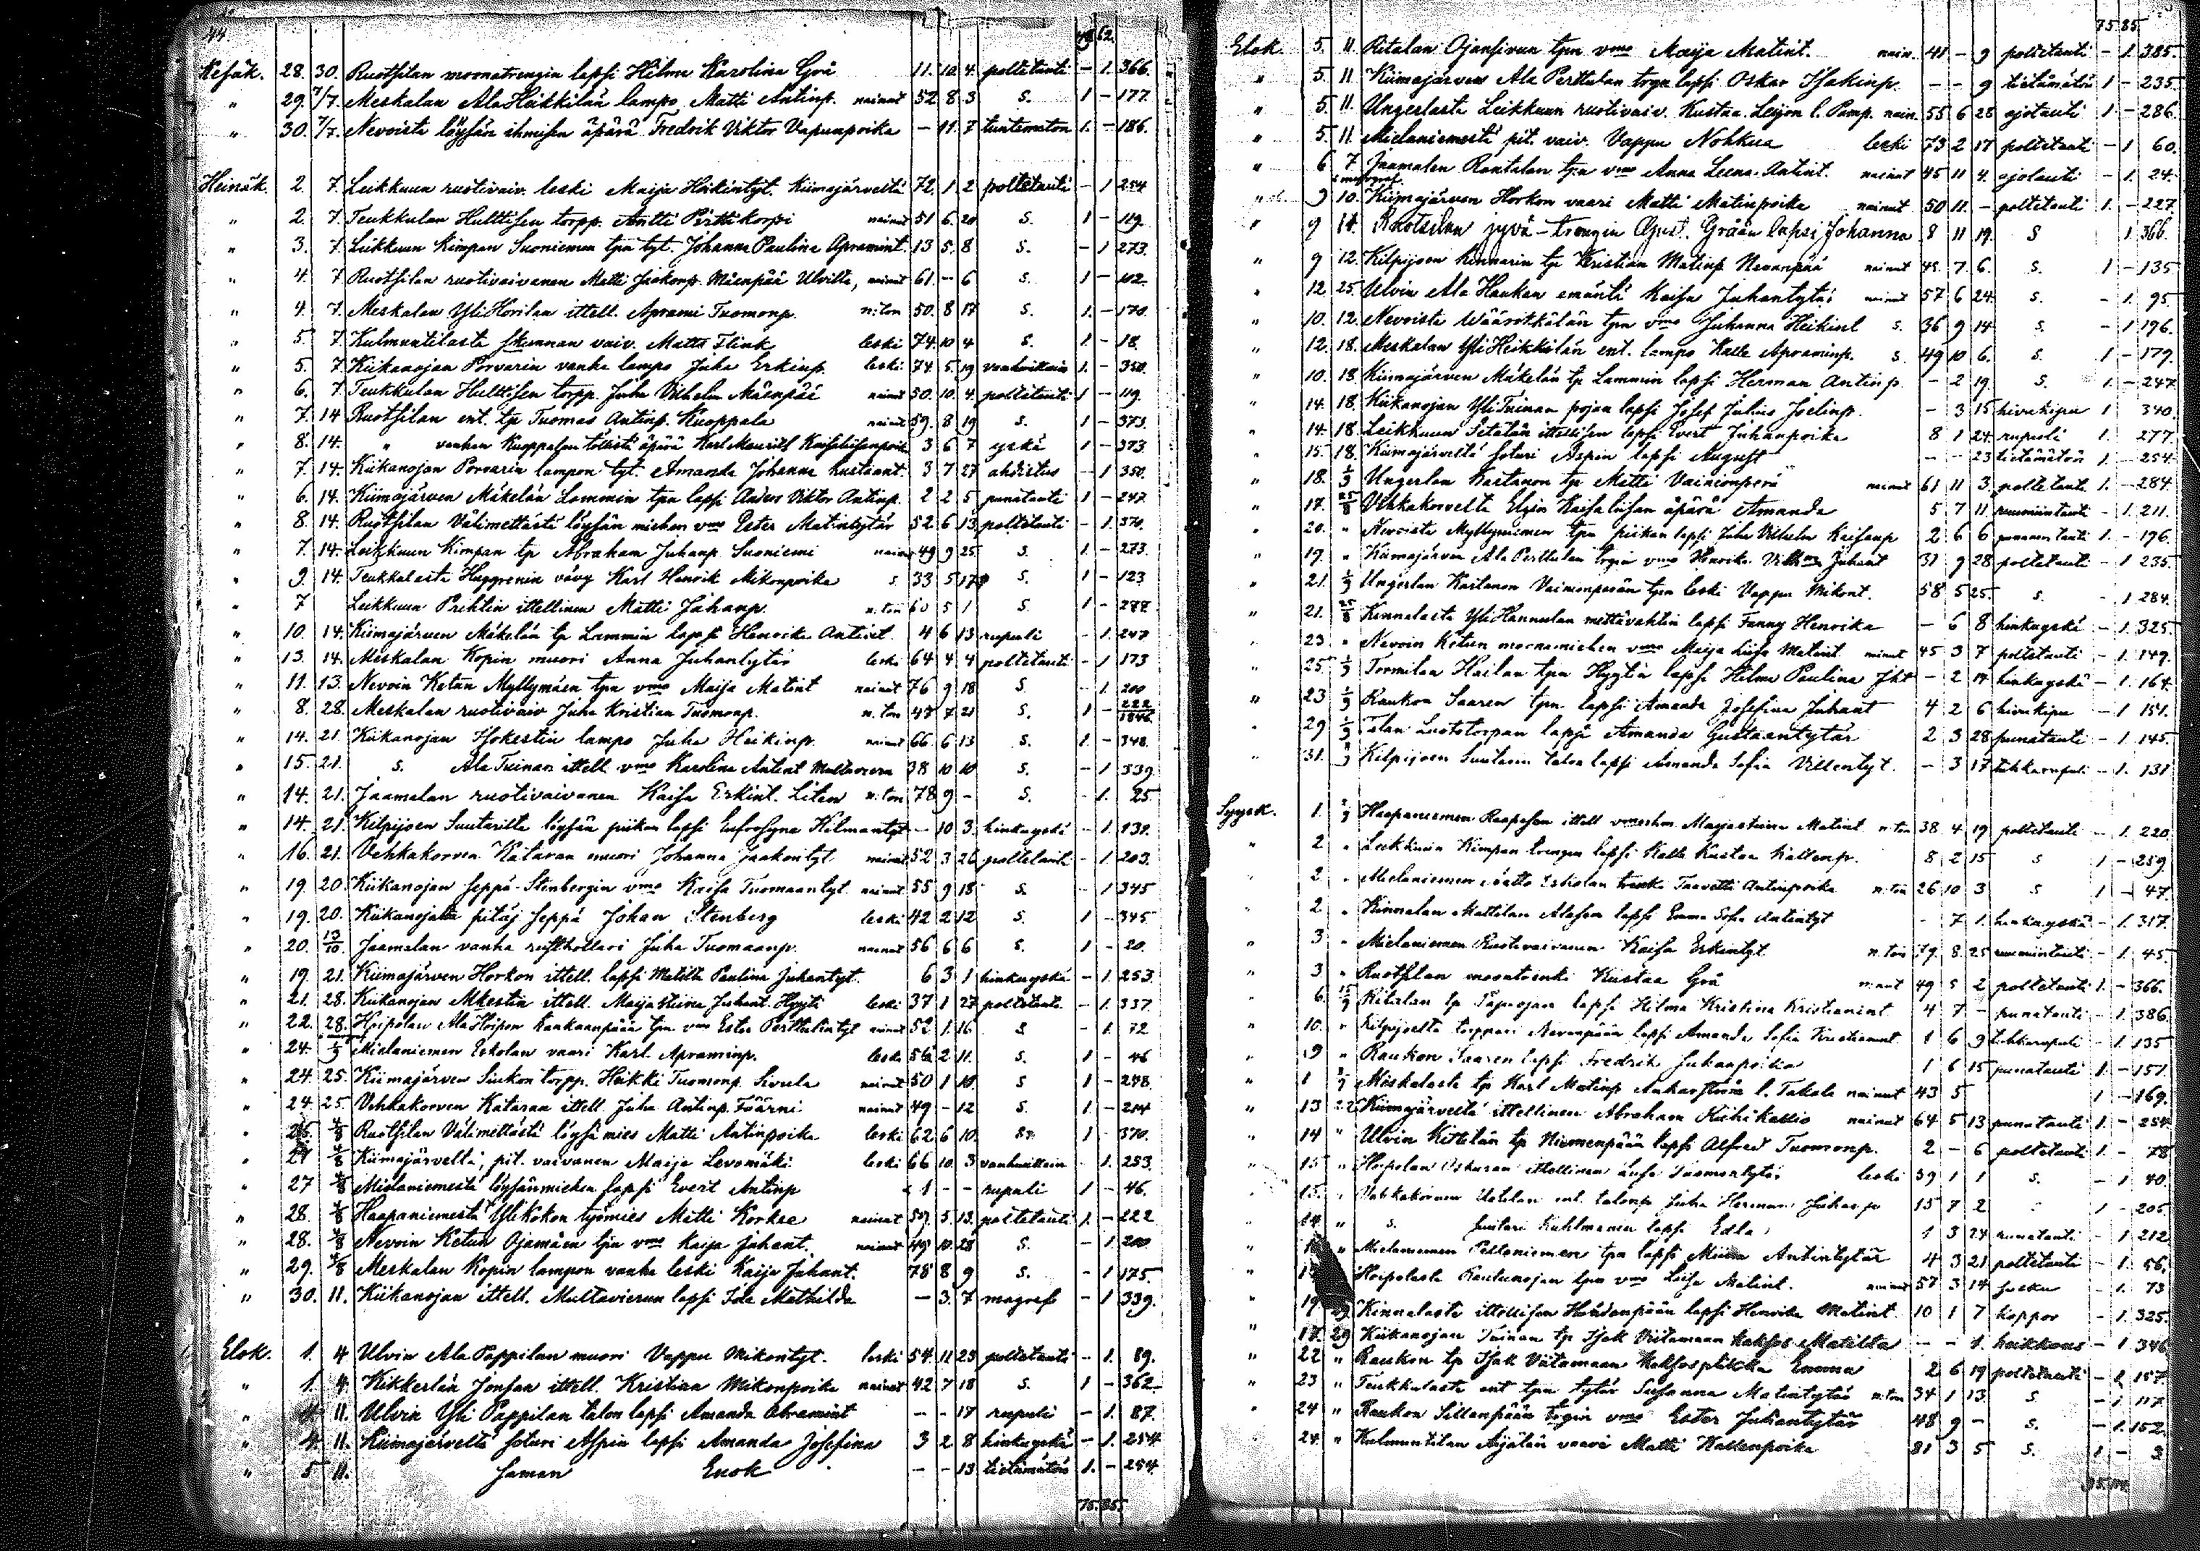 44
49 62.
Kesäk. 28. 30. Ruotsilan moonatrengin lapsi Hilma Karolina Grå 11. 10. 4. polttotauti - 1. 366.
" 29. 7/7. Meskalan AlaHeikkilän lampo. Matti Antinp. nainut 52 8 3 s. 1 - 177.
" 30. 7/7. Nevoista löysän ihmisen äpärä Fredrik Viktor Vapunpoika - 11. 7 tuntematon 1. - 186.
Heinäk. 2. 7. Leikkuun ruotivaiv. leski Maija Heikintyt. Kiimajärveltä 72. 1 2 polttotauti - 1 254
" 2. 7. Teukkulan Hulttisen torpp. Antti Perttikorpi nainut 51 6 20 s. 1 - 119.
" 3. 7. Leikkuun Kimpan Suoniemen tpn tyt. Johanna Paulina Apramint. 13 5. 8 s. - 1 273.
" 4. 7 Ruotsilan ruotivaivanen Matti Jaakonp. Mäenpää Ulvilta, nainut 61 - 6 s. 1 - 102.
" 4. 7. Meskalan YliHorilan ittell. Aprami Tuomonp. n:ton 50. 8 17 s. 1. - 170.
" 5. 7 Kulmuntilasta vaiv. Matti Flink leski 74. 10 4 s. 1 - 18.
" 5. 7 Kiikanojan Porvarin vanha lampo Juha Erkinp. leski 74 5. 19 vanhuuttaan 1. - 350.
" 6. 7. Teukkulan Hulttisen torpp. Juha Vilhelm Mäenpää nainut 50. 10. 4. polttotauti 1 - 119.
" 7. 14 Ruotsilan ent. tp Tuomas Antinp. Kuoppala nainut 59. 8 19 s. 1 - 373.
" 8. 14. " vanhan Kuoppalan äpärä Karl Mauritz Kaisaliisanpoika 3 6 7 yskä 1 - 373
" 7. 14. Kiikanojan Porvarin lampon tyt. Amanda Johanna Kustaant. 3 7 27 ahdistus - 1 350.
" 6. 14. Kiimajärven Mäkelän Lammin tpn lapsi Anders Viktor Antinp. 2 2 5 punatauti 1 - 247.
" 8. 14. Ruotsilan Välimettästä löysän miehen vmo Ester Matintytär 52. 6 13 polttotauti - 1 370.
" 7. 14. Leikkuun Kimpan tp Abraham Juhanp. Suoniemi nainut 49 9 25 s. 1 - 273.
" 9. 14. Teukkalasta Haggrenin vävy Karl Henrik Mikonpoika s. 33 5 17 s. 1 - 123
" 7 Leikkuun Prihtin ittellinen Matti Juhanp. n:ton 60 5 1 s. 1 - 277.
" 10. 14. Kiimajärven Mäkelän tp Lammin lapsi Henrika Antint. 4 6 13 rupuli - 1. 247
" 13. 14. Meskalan Kopin muori Anna Juhantytär leski 64 4 4 polttotauti - 1 173
" 11. 13. Nevoin Ketun Myllymäen tpn vmo Maija Matint nainut 76 9 18 s. - 1. 200
" 8. 28. Meskalan ruotivaiv Juha Kristian Tuomonp. n.ton 47 7 21 s. 1 - 222/1846.
" 14. 21. Kiikanojan Isokestin lampo Juha Heikinp. nainut 66. 6 13 s. 1. - 348.
" 15. 21. s. AlaTuinan ittell. vmo Karolina Antint Multavieru 38 10 10 s. - 1 339.
" 14. 21. Jaamalan ruotivaivanen Kaisa Erkint. Liten n:ton 78 9 - s. - 1. 25.
" 14. 21. Kilpijoen Suutarilta löysän piikan lapsi Eufrosyna Hilmantyt - 10 3. hinkuyskä - 1. 131.
" 16. 21. Vehkakorven Kataran muori Johanna Jaakontyt nainut 52 3 26 polttotauti - 1. 203.
" 19. 20. Kiikanojan seppä Stenbergin vmo Kaisa Tuomaantyt. nainut 55 9 18. s. - 1 345
" 19. 20. Kiikanojalta pitäj seppä Johan Stenberg leski 42 2 12 s. 1 - 345.
" 20. 13/10. Jaamalan vanha rusthollari Juha Tuomaanp. nainut 56 6 6 s. 1 - 20.
" 19 21. Kiimajärven Horkon ittell. lapsi Matilda Paulina Juhantyt. 6 3 1 hinkuyskä - 1. 253.
" 21. 28. Kiikanojan ittell. Maijastiina Juhant. Hyyti leski 37 1 27 polttotauti. - 1. 337.
" 22. 28. Hoipolan AlaHoipon Kankaanpään tpn vmo Ester Perttulintyt nainut 52 1. 16 s - 1. 72
" 24. Mielaniemen Eskolan vaari Karl Apraminp. leski 56 2 11. s. 1 - 46
" 24. 25. Kiimajärven Sinkon torpp. Heikki Tuomonp. Sivula nainut 50 1 10. s 1 - 248.
" 24. 25. Vehkakorven Kataran ittell. Juha Antinp. nainut 49 - 12 s. 1 - 214
" 4/8 Ruotsilan Välimettästä löysä mies Matti Antinpoika leski 62 6 10. 1 - 370.
" 27 4/8 Kiimajärveltä, pit. vaivanen Maija Levomäki leski 66 10. 3 vanhuuttaan - 1. 253.
" 27 4/8 Mielaniemestä löysänmiehen lapsi Evert Antinp 1 - - rupuli 1 - 46.
" 28. 4/8 Haapaniemestä YliKokon työmies Matti Korkee nainut 5. 13. polttotauti 1. - 222.
" 28. 4/8 Nevoin Ketun Ojamäen tpn vmo Kaija Juhant. nainut 49 10 28 s. - 1 200.
" 29. 4/8 Meskalan Kopin lampon vanha leski Kaija Juhant. 78 8 9 s. - 1 175.
" 30. 11. Kiikanojan ittell. Multavierun lapsi Ida Mathilda - 3. 7 - 1 339.
Elok. 1. 4 Ulvin AlaPappilan muori Vappu Mikontyt. leski 54 11 23 polttotauti - 1. 89.
" 1. 4. Kikkerlän Jonsan ittell. Kristian Mikonpoika nainut 42 7 18 s. 1 - 362.
" 4. 11. Ulvin Yli Pappilan talon lapsi Amanda Abramint - - 17 rupuli - 1. 87.
" 4. 11. Kiimajärveltä soturi Aspin lapsi Amanda Josefina 3 2 8 hinkuyskä - 1. 254.
" 5 11. saman Enok - - 13 tietämätön 1. - 254.
75. 85.
75 85.
Elok. 5. 11. Ritalan Ojansivun tpn vmo Maija Matint. nain. 41 - 9 polttotauti - 1. 385.
" 5. 11. Kiimajärven Ala Perttulan trgn lapsi Oskar Isakinp. - - 9 tietämätön 1 - 235.
" 5. 11. Ungerlasta Leikkuun ruotivaiv. Kustaa Leijon l. Pamp. nain. 55 6 28 ajotauti 1 - 286.
" 5. 11. Mielaniemestä pit. vaiv. Vappu Nohkua leski 73 2 17 polttotauti - 1 60.
" 6 7 Jaamalan Rantalan tpn vmo Anna Leena Antint. nainut 45 11 4. ajotauti - 1. 24.
" 9 10. Kiimajärven Horkon vaari Matti Matinpoika nainut 50 11 - polttotauti 1. - 227.
" 9 14. Ruotsilan jyvä-trengin AJust. Gråån lapsi Johanna 8 11 19. s 1 366.
" 9 12. Kilpijoen Kinnarin tp Kristian Matinp Nevanpää nainut 49. 7 6. s. 1 - 135
" 12. 25. Ulvin Ala Haukan emäntä Kaisa Juhantytär nainut 57 6 24. s. - 1. 95.
" 10. 12. Nevoista tpn vmo Juhanna Heikint s. 36 9 14 s. - 1 196.
" 12. 18. Meskalan YliHeikkilän ent. lampo Kalle Apraminp. s. 49 10 6. s. 1 - 179.
" 10. 18 Kiimajärven Mäkelän tp Lammin lapsi Herman Antinp. - 2 19. s. 1. - 247.
" 14. 18. Kiikanojan YliTuinan pojan lapsi Josef Julius Joelinp. - 3 15 hivukipu 1 340.
" 14. 18 Leikkuun Setälän ittellisen lapsi Evert Juhanpoika 8 1 24. rupuli 1. 277.
" 15. 18. Kiimajärveltä soturi Aspin lapsi August - - 23 tietämätön 1. - 254.
" 18. Ungerlan Kartanon tp Matti Vainionperä nainut 61 11 3. polttotauti 1. - 284.
" 17. 25/8 Vehkakorvelta Elgin Kaisaliisan äpärä Amanda 5 7 11 - 1. 211.
" 20. " Nevoista Myllyniemen tpn piikan lapsi Juha Vilhelm Kaisanp 2 6 6 punanen tauti 1. - 196.
" 19. " Kiimajärven Ala Perttulan trgin vmo Henrika Vilhma Juhant 31 9 28 polttotauti - 1 235.
" 21. 1/9 Ungerlan Kartanon Vainionperän tpn leski Vappu Mikont. 58 5 25. s. - 1 284.
" 21. 25/8 Kinnalasta YliHannulan mettävahtin lapsi Fanny Henrika - 6 8 hinkuyskä - 1. 325.
" 23 " Nevoin Ketun moonamiehen vmo Maija Liisa Matint. nainut 45 3 7 polttotauti - 1. 149.
" 25. 1/9 Tormilan Haslan tpn Hyytin lapsi Hilma Paulina Jht - 2 17 hinkuyskä - 1. 164.
" 23 1/9 Raukon Saaren tpn. lapsi Amanda Josefina Juhant 4 2 6 hivukipu - 1 151.
" 29 1/9 Talan lapsi Amanda Gustaantytär 2 3 28 punatauti - 1. 145.
" 31. Kilpijoen Suutarin talon lapsi Amanda Sofia Villentyt. - 3 17 tuhkarupuli - 1. 131
Syysk. 1. Haapaniemen Raapasen ittell. Maijastiina Matint n:ton 38 4 19 polttotauti - 1. 220.
" 2 " Leikkuun Kimpan trengin lapsi Kalle Kustaa Kallenp. 8 2 15 s 1 - 259.
" 2 " Mielaniemen Eskolan trenki Taavetti Antinpoika n:ton 26 10 3 s 1 - 47.
" 2 " Kinnalan Mattilan lapsi Emma Sofia Antintyt - 7 1. hinkuyskä - 1. 317.
" 3 " Mielaniemen Ruotivaivanen Kaisa Erkintyt. n.ton 79. 8. 25 - 1. 45
" 3 " Ruotsilan moonatrenki Kustaa Grå nainut 49 5 2 polttotauti 1. - 366.
" 6. Ritalan tp Tapiojan lapsi Hilma Kristina Kristianint. 4 7 - punatauti - 1. 386.
" 10. " Kilpijoelta torppari Nevanpään lapsi Amanda Sofia Kristianint 1 6 9 tuhkarupuli - 1. 135
" 9 " Raukon Saaren lapsi Fredrik Juhanpoika 1 6 15 punatauti 1. - 151.
" 1 Meskalasta tp Karl Matinp l. Takala nainut 43 5 1 - 169.
" 13 22 Kiimajärveltä ittellinen Abraham Kiikikallio nainut 64 5 13 punatauti 1. - 254
" 14 " Ulvin Kittilän tp Niemenpään lapsi Alfred Tuomonp. 2 - 6 polttotauti 1. - 78
" 15 " Hoipolan ittellinen Tuomontytär leski 39 1 1 s. - 1 40.
" 15. " Vehkakorven ent. talonp Juha Herman Juhanp 15 7 2 1 - 205
" 14 " s. suutari Kuhlmanin lapsi Edla 1 3 24 punatauti - 1 212
" Mielaniemen Peltoniemen tpn lapsi Miina Antintytär 4 3 21 polttotauti - 1. 56.
" Hoipolasta Rautunojan tpn vmo Liisa Matint. nainut 57 3 14 - 1. 73
" 19 29 Kinnalasta ittellisen lapsi Henrika Matint 10 1 7 koppor - 1. 325.
" 17. 29 Kiikanojan Tuinan tp Isak Viitamaan kakfos Matilta - - 1. heikkous - 1 346
" 22 " Raukon tp Isak Viitamaan Emma 2 6 19 polttotauti - 1. 157.
" 23 " Teukkalasta ent tpn tytär Susanna Matintytär n:ton 34 1 13 s - 1 117.
" 24 " Raukon Sillanpään trgin vmo Ester Juhantytär 48 9 - s. - 1. 152.
" 24. " Kulmuntilan Äijälän vaari Matti Kallenpoika 81 3 5 s. 1 - 3